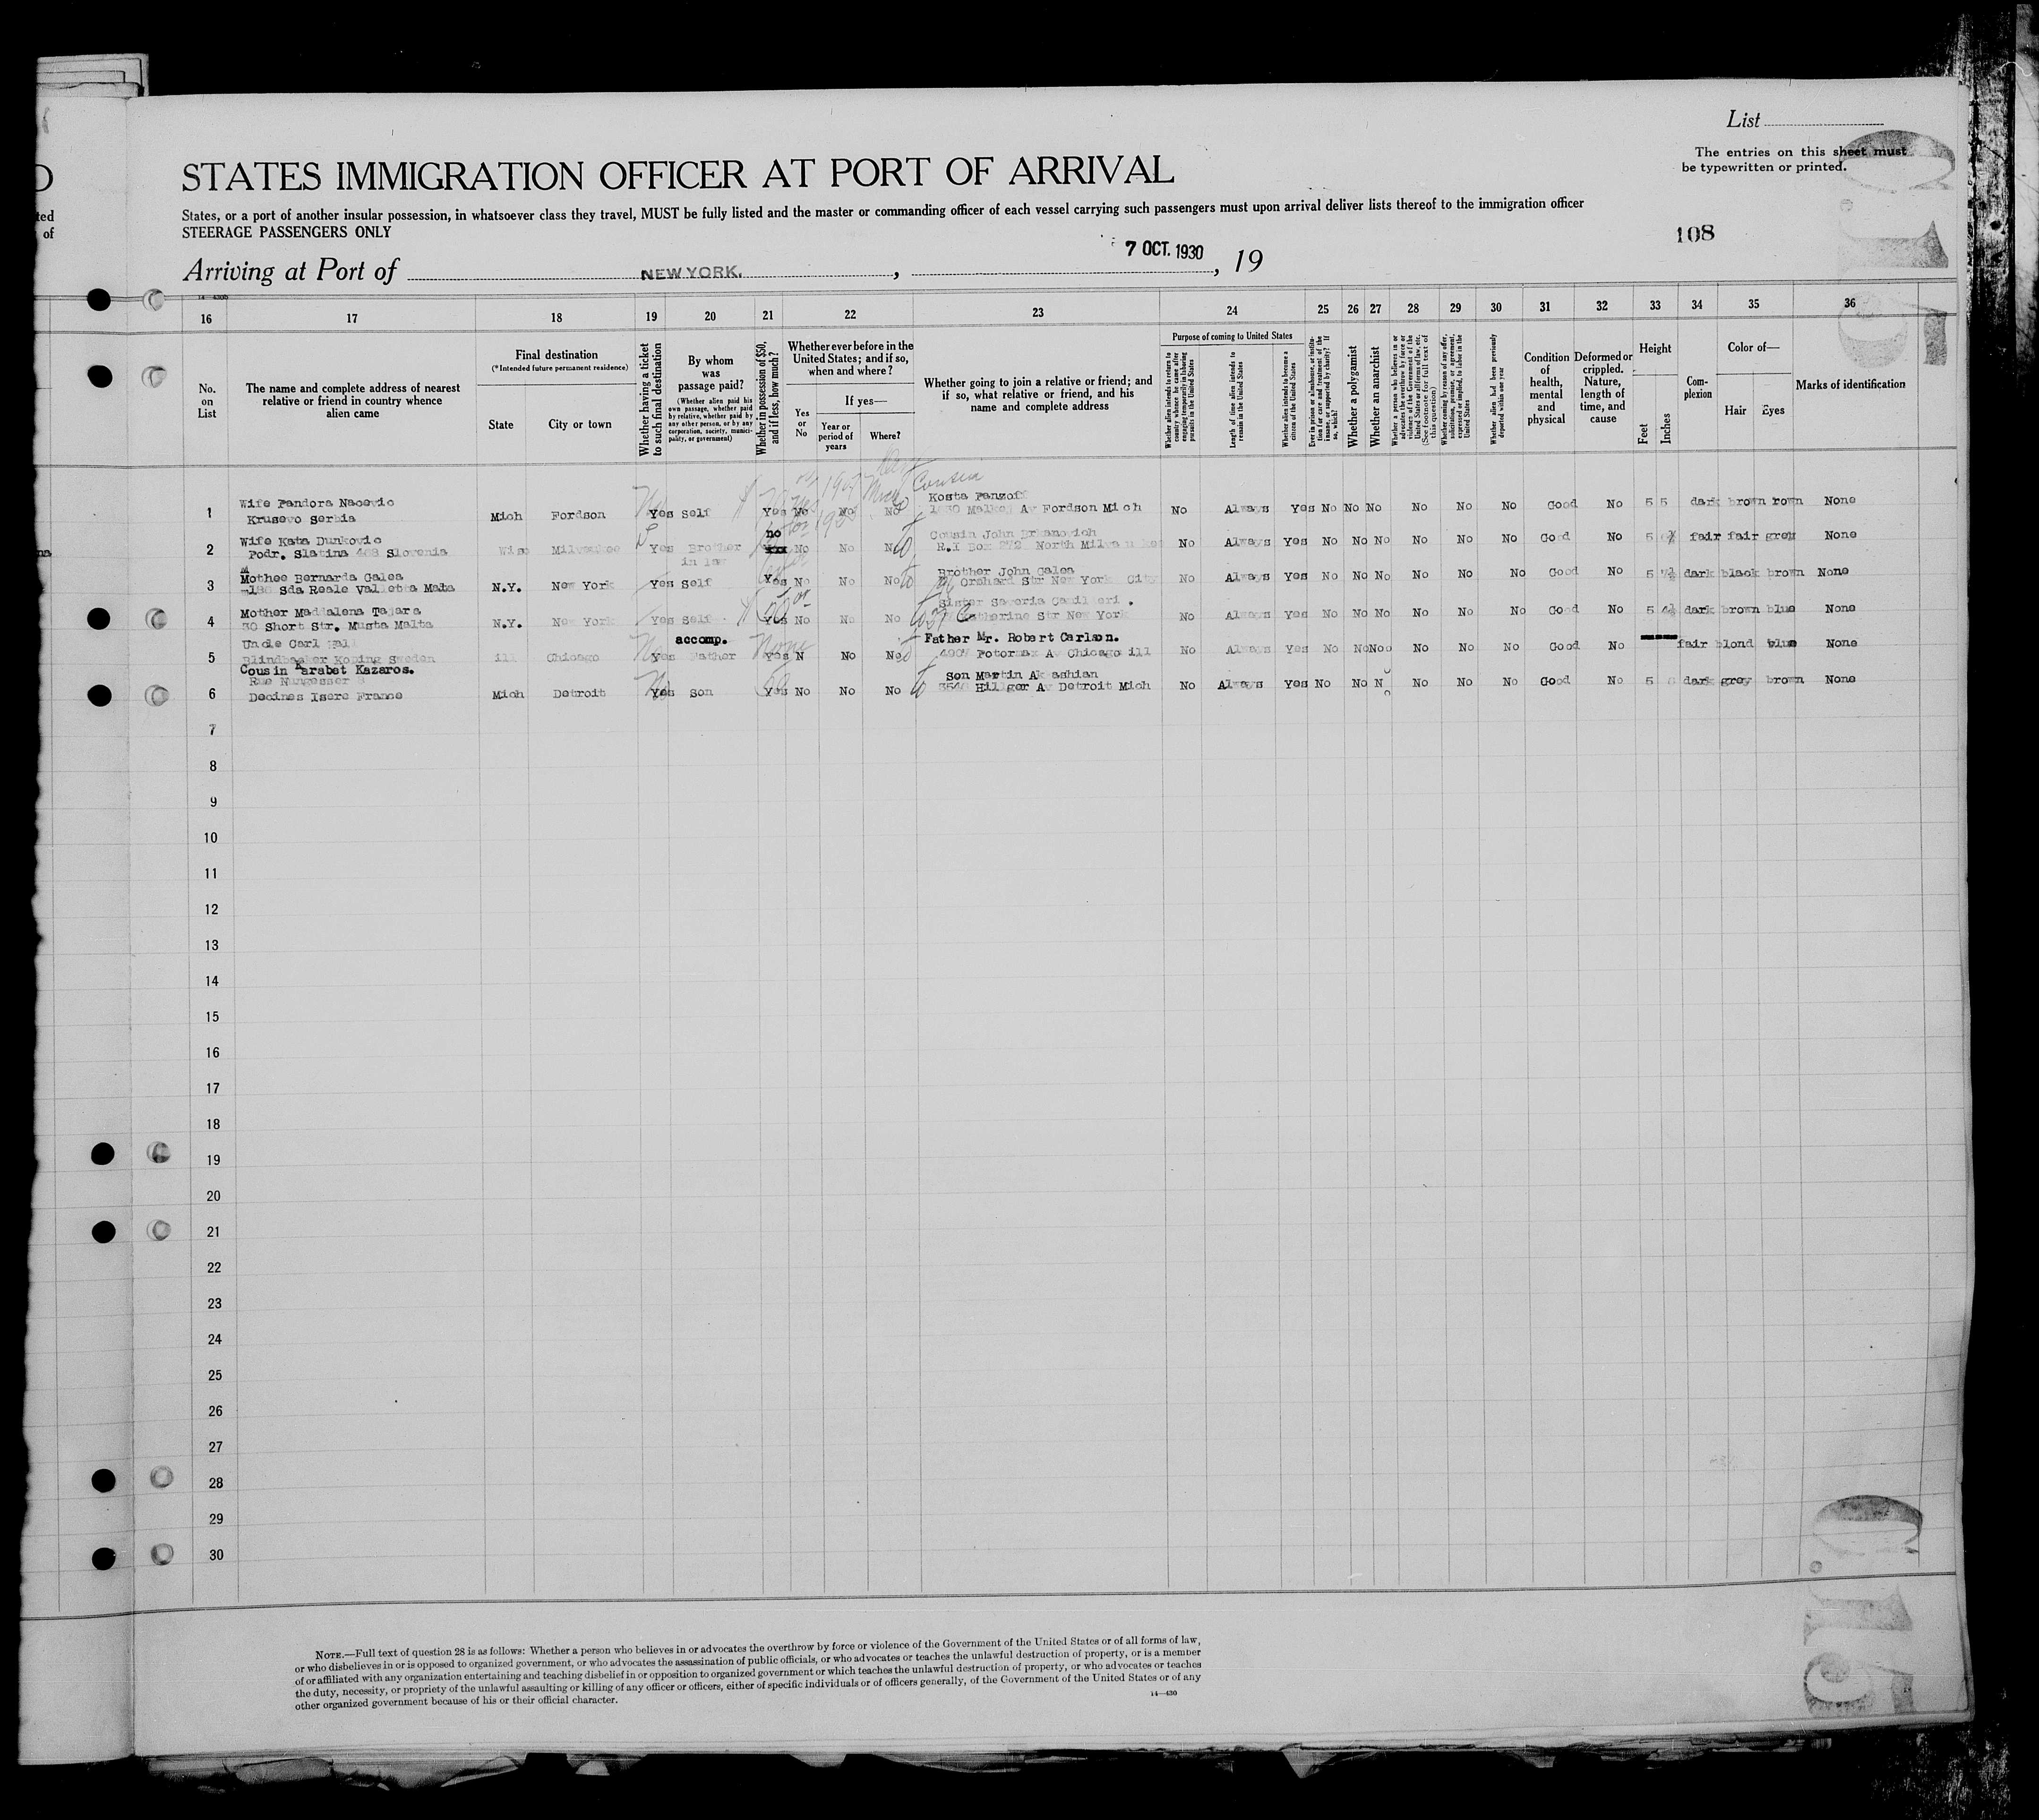 List
The entries on this sheet must
be typewritten or printed.
STATES IMMIGRATION OFFICER AT PORT OF ARRIVAL
States, or a port of another insular possession, in whatsoever class they travel, MUST be fully listed and the master or commanding officer of each vessel carrying such passengers must upon arrival deliver lists thereof to the immigration officer
STEERAGE PASSENGERS ONLY
108
Arriving at Port of NEW YORK. , 7 OCT. 1930 , 19
16 17 18 19 20 21 22 23 24 25 26 27 28 29 30 31 32 33 34 35 36
No. on List
The name and complete address of nearest relative or friend in country whence alien came
Final destination
(*Intended future permanent residence)
State
City or town
Whether having a ticket to such final destination
By whom was passage paid?
(Whether alien paid his own passage, whether paid by relative, whether paid by any other person, or by any corporation, society, municipality, or government)
Whether in possession of $50, and if less, how much?
Whether ever before in the United States; and if so, when and where?
Yes or No
If yes—
Year or period of years
Where?
Whether going to join a relative or friend; and if so, what relative or friend, and his name and complete address
Purpose of coming to United States
Whether alien intends to return to country whence he came after engaging temporarily in laboring pursuits in the United States
Length of time alien intends to remain in the United States
Whether alien intends to become a citizen of the United States
Ever in prison or almshouse, or institution for care and treatment of the insane, or supported by charity? If so, which?
Whether a polygamist
Whether an anarchist
Whether a person who believes in or advocates the overthrow by force or violence of the Government of the United States or all forms of law, etc. (See footnote for full text of this question)
Whether coming by reason of any offer, solicitation, promise, or agreement, expressed or implied, to labor in the United States
Whether alien had been previously deported within one year
Condition of health, mental and physical
Deformed or crippled. Nature, length of time, and cause
Height
Feet
Inches
Complexion
Color of—
Hair
Eyes
Marks of identification
Cousin
Wife Pandora Nacevic Kosta Panzoff
1 Krusevo Serbia Mich Fordson Yes Self Yes No No No Av Fordson Mich No Always Yes No No No No No No Good No 5 5 dark brown rown None
no
Wife Kata Dunkovic Cousin John
2 Podr. Slatina 468 Slovenia Wis Milwaukee Yes Brother in law No No R.I Box 272 North No Always Yes No No No No No No Good No 5 fair fair grey None
Mothee Bernarda Galea Brother John Galea
3 Sda Reale Valletta Malta N.Y. New York Yes Self Yes No No No Orchard Str New York City No Always Yes No No No No No No Good No 5 7½ dark black brown None
Mother Maddalena Tajara Sister Saveria Camilleri.
4 30 Short Str. Musta Malta N.Y. New York Yes Self Yes No No No Catherine Str New York No Always Yes No No No No No No Good No 5 4½ dark brown blue None
Uncle Carl accomp. Father Mr. Robert Carlson.
5 Koping Sweden ill Chicago Yes Father Yes N No No Potormax Av Chicago ill No Always Yes No No No No No No Good No fair blond blue None
Cousin Karabet Kazaros. Son Martin
Rue Nungesser
6 Decines Isere France Mich Detroit Yes Son Yes No No No Hillger Av Detroit Mich No Always Yes No No N No No No Good No 5 dark grey brown None
7
8
9
10
11
12
13
14
15
16
17
18
19
20
21
22
23
24
25
26
27
28
29
30
NOTE.—Full text of question 28 is as follows: Whether a person who believes in or advocates the overthrow by force or violence of the Government of the United States or of all forms of law,
or who disbelieves in or is opposed to organized government, or who advocates the assassination of public officials, or who advocates or teaches the unlawful destruction of property, or is a member
of or affiliated with any organization entertaining and teaching disbelief in or opposition to organized government or which teaches the unlawful destruction of property, or who advocates or teaches
the duty, necessity, or propriety of the unlawful assaulting or killing of any officer or officers, either of specific individuals or of officers generally, of the Government of the United States or of any
other organized government because of his or their official character.
14—430